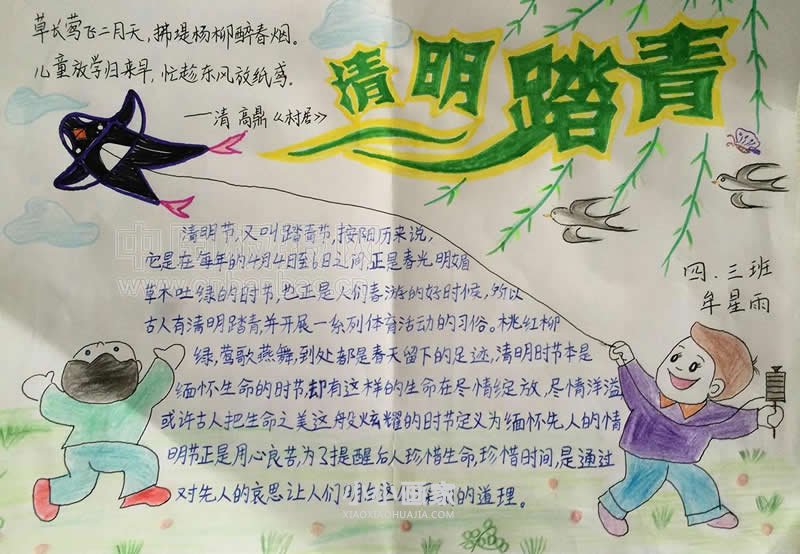 草长莺飞二月天，拂堤杨柳醉春烟。
儿童放学归来早，忙趁东风放纸鸢。
——清 高鼎《村居》
清明踏青
清明节，又叫踏青节，按阳历来说，
它是在每年的4月4日至6日之间，正是春光明媚
草木吐绿的时节，也正是人们春游的好时候，所以
古人有清明踏青，并开展一系列体育活动的习俗。桃红柳
绿，莺歌燕舞，到处都是春天留下的足迹，清明时节本是
缅怀生命的时节，却有这样的生命在尽情绽放，尽情洋溢
或许古人把生命之美这般炫耀的时节定义为缅怀先人的情
明节正是用心良苦，为了提醒后人珍惜生命，珍惜时间，是通过
对先人的哀思让人们明白这的道理。
四、三班
牟星雨
XIAOXIAOHUAJIA.COM